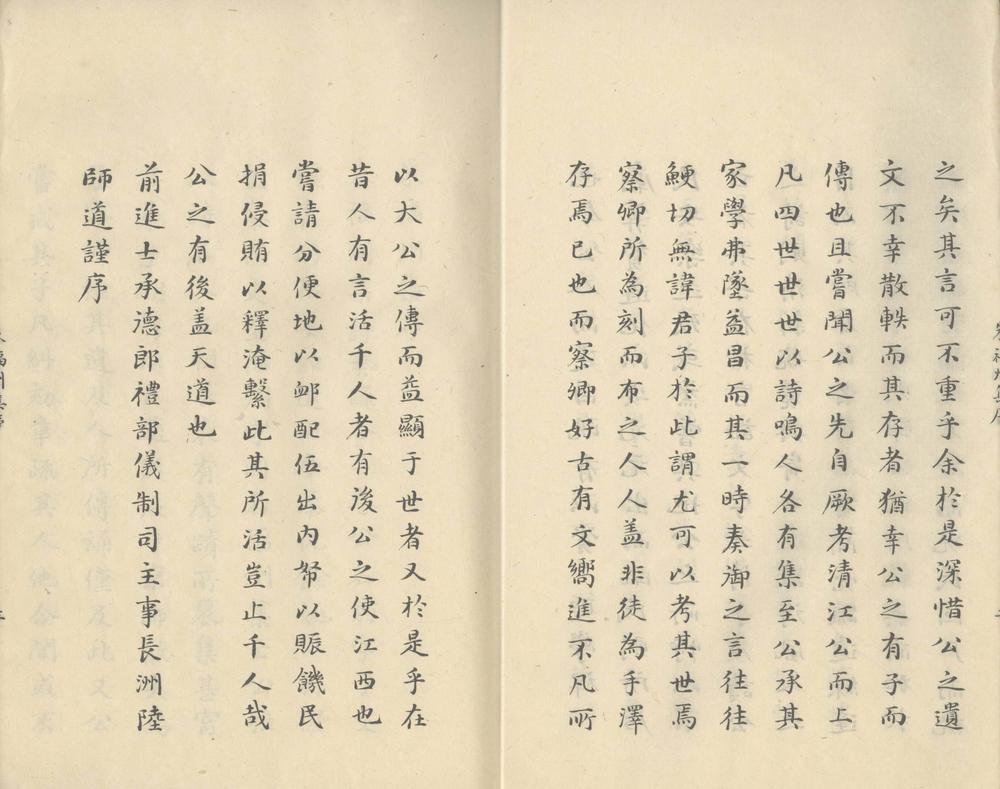 之矣其言可不重乎余於是深惜公之遺
文不幸散軼而其存者猶幸公之有子而
傳也且嘗聞公之先自厥考清江公而上
凡四世世世以詩鳴人各有集至公承其
家學弗墜益昌而其一時奏御之言往往
鯁切無諱君子於此謂尤可以考其世焉
察卿所為刻而布之人人盖非徒為手澤
存焉已也而察卿好古有文嚮進不凡所
以大公之傳而益顯于世者又於是乎在
昔人有言活千人者有後公之使江西也
嘗請分便地以䘏配伍出内帑以賑饑民
捐侵賄以釋淹繫此其所活豈止千人哉
公之有後盖天道也
前進士承德郎禮部儀制司主事長洲陸
師道謹序